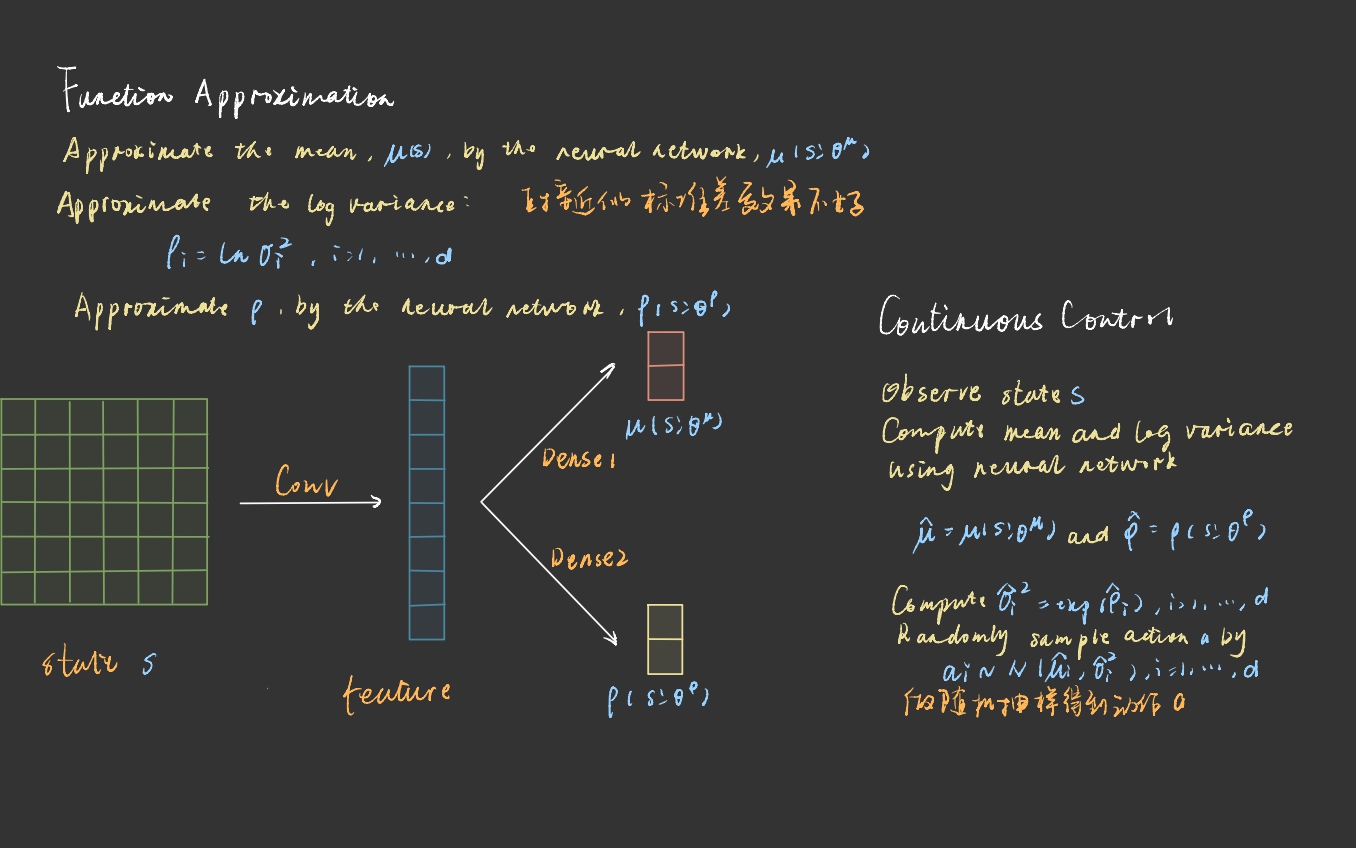 Function Approximation
Approximate the mean, μ(s), by the neural network, μ(s;θ^μ)
Approximate the log variance: 直接近似标准差效果不好
ρᵢ = ln σᵢ², i=1, ..., d
Approximate ρ, by the neural network, ρ(s;θ^ρ)
μ(s;θ^μ)
Dense1
Conv
Dense2
state s
feature
ρ(s;θ^ρ)
Continuous Control
Observe state s
Compute mean and log variance
using neural network
μ̂ = μ(s;θ^μ) and ρ̂ = ρ(s;θ^ρ)
Compute σ̂ᵢ² = exp(ρ̂ᵢ), i=1, ..., d
Randomly sample action a by
aᵢ ~ N(μ̂ᵢ, σ̂ᵢ²), i=1, ..., d
做随机抽样得到动作 a